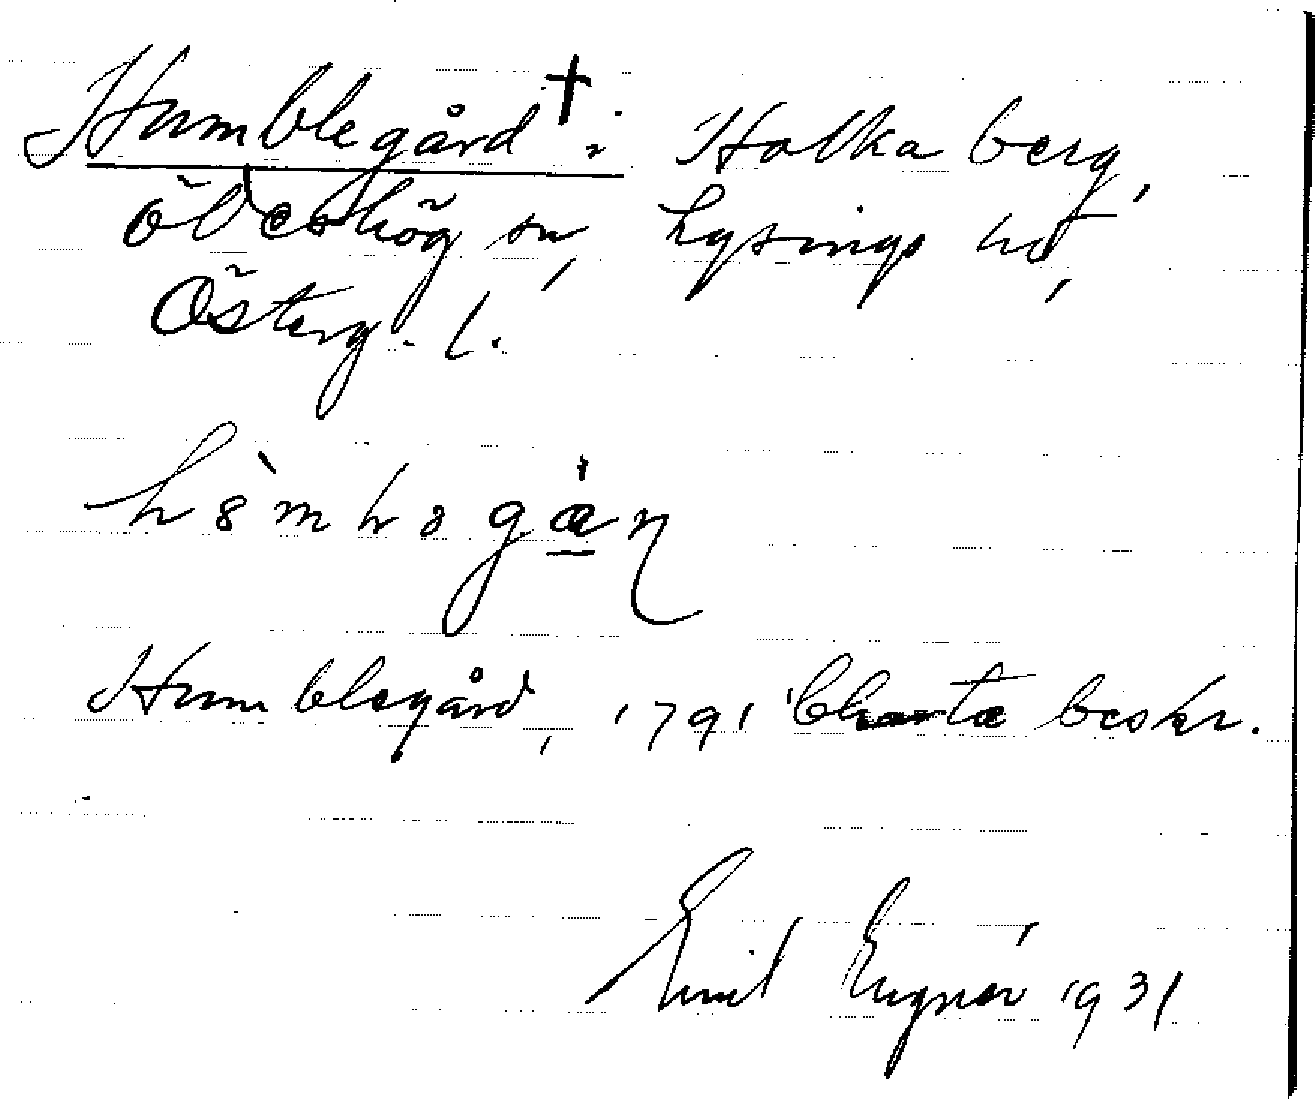 Humblegård † i Holkaberg,
Ödeshög sn, Lysings hd,
Österg. l.
Humblegård, 1791 Charta beskr.
Emil Engnér 1931